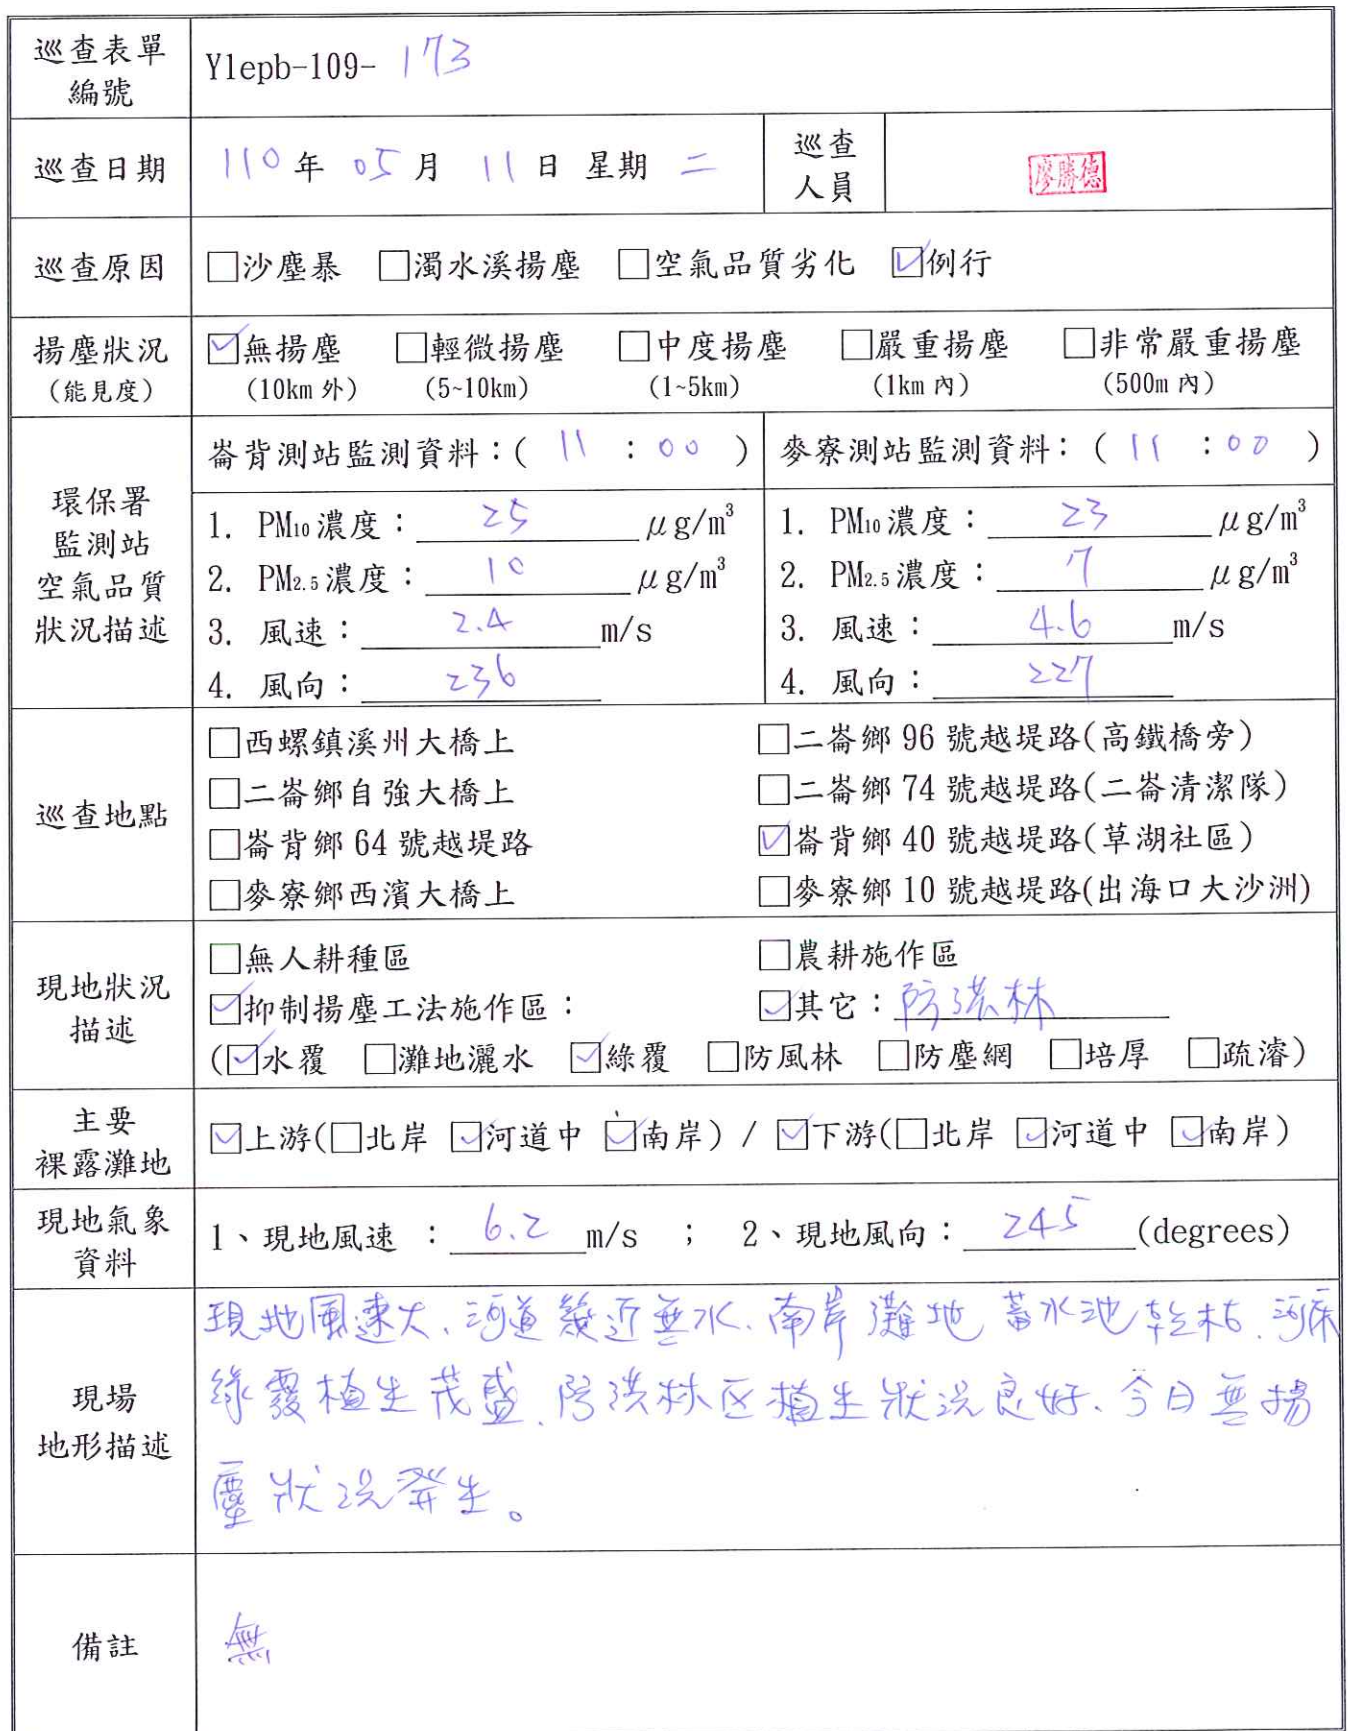 巡查表單
編號
Ylepb-109- 173
巡查日期
110 年 05 月 11 日 星期 二
巡查
人員
廖勝德
巡查原因
□沙塵暴 □濁水溪揚塵 □空氣品質劣化 ☑例行
揚塵狀況
(能見度)
☑無揚塵 □輕微揚塵 □中度揚塵 □嚴重揚塵 □非常嚴重揚塵
(10km 外) (5~10km) (1~5km) (1km 內) (500m 內)
環保署
監測站
空氣品質
狀況描述
崙背測站監測資料：( 11 : 00 )
1. PM10 濃度： 25 μg/m³
2. PM2.5 濃度： 10 μg/m³
3. 風速： 2.4 m/s
4. 風向： 236
麥寮測站監測資料：( 11 : 00 )
1. PM10 濃度： 23 μg/m³
2. PM2.5 濃度： 7 μg/m³
3. 風速： 4.6 m/s
4. 風向： 227
巡查地點
□西螺鎮溪州大橋上 □二崙鄉 96 號越堤路(高鐵橋旁)
□二崙鄉自強大橋上 □二崙鄉 74 號越堤路(二崙清潔隊)
□崙背鄉 64 號越堤路 ☑崙背鄉 40 號越堤路(草湖社區)
□麥寮鄉西濱大橋上 □麥寮鄉 10 號越堤路(出海口大沙洲)
現地狀況
描述
□無人耕種區 □農耕施作區
☑抑制揚塵工法施作區： ☑其它：防洪林
(☑水覆 □灘地灑水 ☑綠覆 □防風林 □防塵網 □培厚 □疏濬)
主要
裸露灘地
☑上游(□北岸 ☑河道中 ☑南岸) / ☑下游(□北岸 ☑河道中 ☑南岸)
現地氣象
資料
1、現地風速 ： 6.2 m/s ； 2、現地風向： 245 (degrees)
現場
地形描述
現地風速大、河道幾近無水、南岸灘地蓄水池乾枯、河床
綠覆植生茂盛、防洪林区植生狀況良好、今日無揚
塵狀況發生。
備註
無